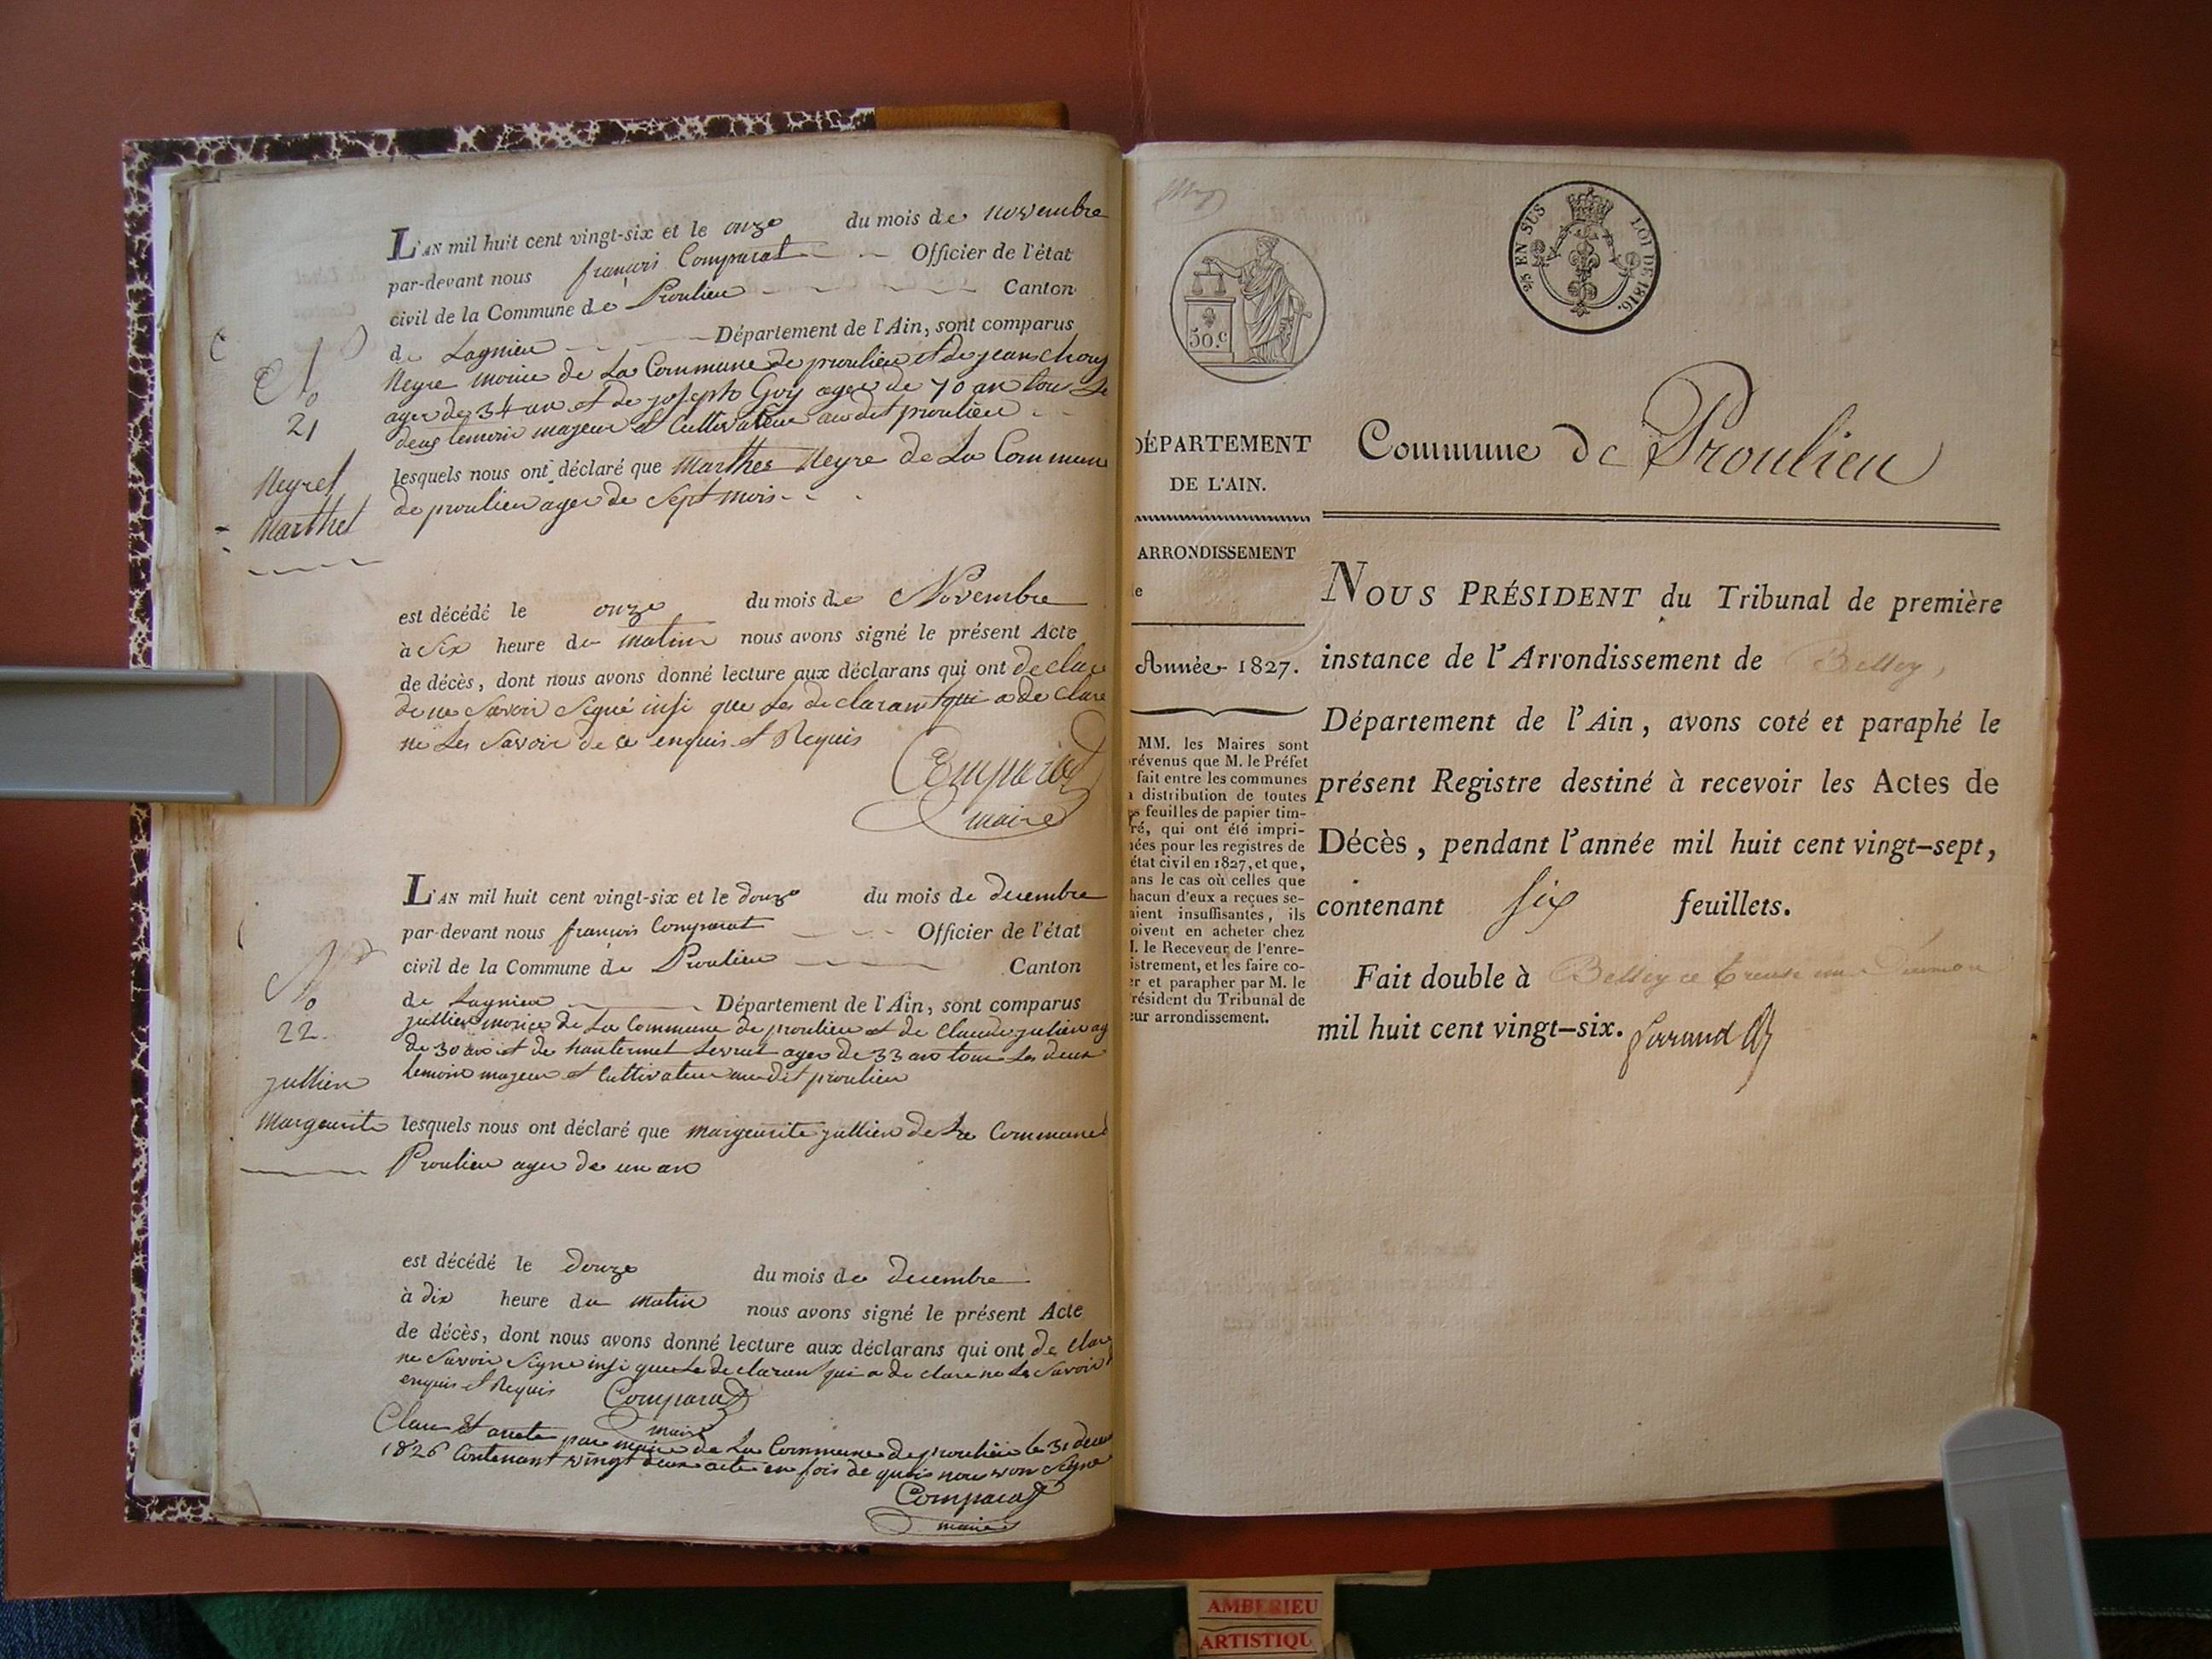 L'AN mil huit cent vingt-six et le onze du mois de novembre
par-devant nous françois Comparat Officier de l'état
civil de la Commune de Proulieu Canton
de Lagnieu Département de l'Ain, sont comparus
Neyre morice de La Commune de proulieu et de jean
ager de 34 an et de joseph Goy ager de 70 an tous Le
deus temoin majeur et Cultivateur au dit proulieu
No
21
Neyret
Marthet
lesquels nous ont déclaré que Marthes Neyre de La Commune
de proulieu ager de Sept mois
est décédé le onze du mois de Novembre
à Six heure du matin nous avons signé le présent Acte
de décès, dont nous avons donné lecture aux déclarans qui ont declare
de ne Savoir Signé insi que Les declarant qui a de Clare
ne Les Savoir de ce enquis et Requis
Comparat
maire
L'AN mil huit cent vingt-six et le douze du mois de decembre
par-devant nous françois Comparat Officier de l'état
civil de la Commune de Proulieu Canton
de Lagnieu Département de l'Ain, sont comparus
jullien morice de La Commune de proulieu et de Claude julien ag
de 30 ans et de ager de 33 ans tous Les deux
temoin majeur et Cultivateur au dit proulieu
No
22
jullien
Margeurite
lesquels nous ont déclaré que margeurite jullien de La Commune d
Proulieu ager de un an
est décédé le douze du mois de decembre
à dix heure du matin nous avons signé le présent Acte
de décès, dont nous avons donné lecture aux déclarans qui ont de clare
ne Savoir Signe insi que Le declarant qui a de clare ne Les Savoir
enquis et Requis Comparat
maire
Clau et arrete par maire de La Commune de proulieu le 31 dece
1826 Contenant vingt deux acte en fois de quois nous avon Signe
Comparat
maire
2/5 EN SUS LOI DE 1816.
50.c
DÉPARTEMENT
DE L'AIN.
ARRONDISSEMENT
e
Année 1827.
MM. les Maires sont
révenus que M. le Préfet
fait entre les communes
a distribution de toutes
es feuilles de papier tim-
ré, qui ont été impri-
ées pour les registres de
état civil en 1827, et que,
ans le cas où celles que
hacun d'eux a reçues se-
aient insuffisantes, ils
oivent en acheter chez
I. le Receveur de l'enre-
istrement, et les faire co-
er et parapher par M. le
résident du Tribunal de
eur arrondissement.
Commune de Proulieu
NOUS PRÉSIDENT du Tribunal de première
instance de l'Arrondissement de Belley,
Département de l'Ain, avons coté et paraphé le
présent Registre destiné à recevoir les Actes de
Décès, pendant l'année mil huit cent vingt-sept,
contenant six feuillets.
Fait double à Belley ce treize
mil huit cent vingt-six.
AMBERIEU
ARTISTIQU